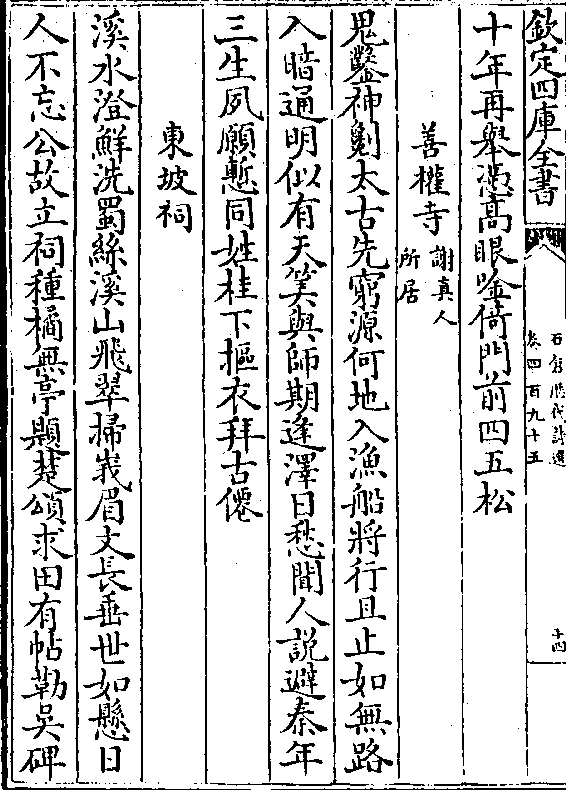 欽定四庫全書
石倉歷代詩選
卷四百九十五
十四
十年再舉憑高眼唫倚門前四五松
善權寺
謝真人
所居
鬼鑿神劖太古先窮源何地入漁船將行且止如無路
入暗通明似有天笑與師期逢澤日愁聞人說避秦年
三生夙願慙同姓桂下摳衣拜古僊
東坡祠
溪水澄鮮洗蜀絲溪山飛翠掃峩眉文長垂世如懸日
人不忘公故立祠種橘無亭題楚頌求田有帖勒吳碑